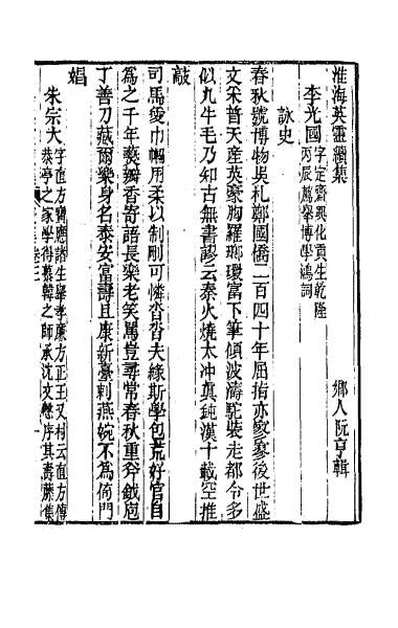 淮海英靈續集 鄉人阮亨輯
李光國字定齋興化貢生乾隆
丙辰薦舉博學鴻詞
詠史
春秋號博物吳札鄭國僑二百四十年屈指亦寥寥後世盛
文采普天産英豪胸羅瓊富下筆傾波濤駝裝走都令多
似九牛毛乃知古無書謬云秦火燒太沖真鈍漢十載空推
敲
司馬愛巾幗用柔以制剛可憐沓沓夫緣斯學包荒好官自
爲之千年襲瓣香寄語長樂老笑罵豈尋常春秋重斧鉞庖
丁善刀藏爾榮身名泰安富壽且康新臺刺燕婉不爲倚門
娼
朱宗大字直方寶應諸生舉孝廉方正王又村云直方傳
恭亭之家學得慕韓之師承沈文慤序其壽藤集